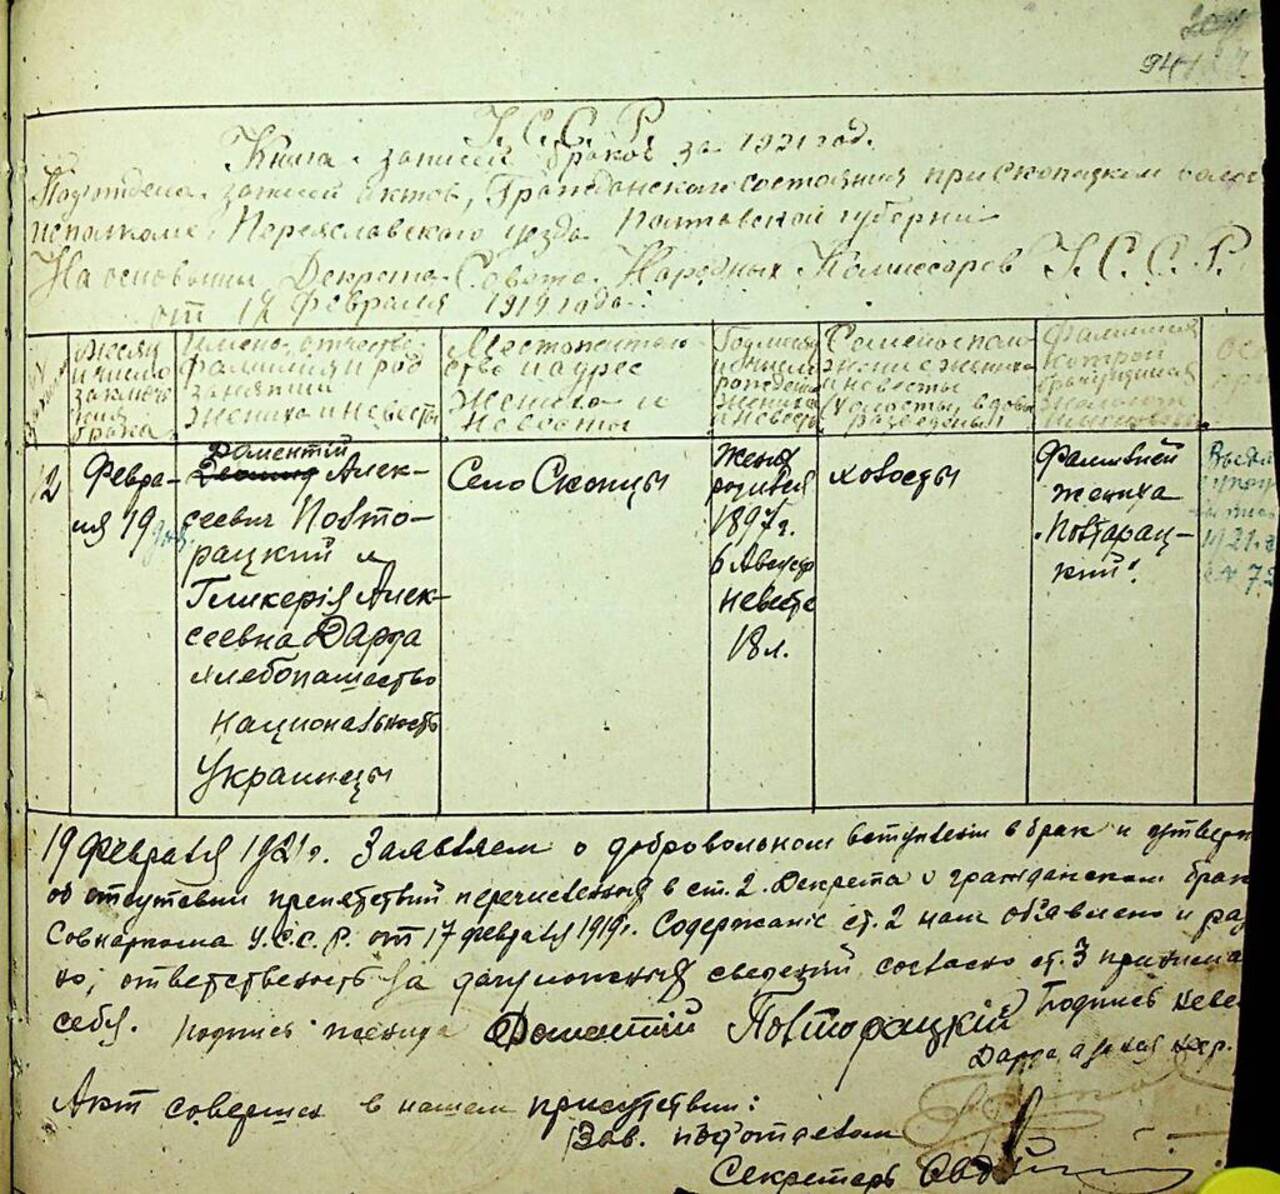 94
У. С. С. Р.
Книга записей браков за 1921 год.
Подотдела записей актов, Гражданского состояния при Скопецком волос
исполкоме, Переяславского уезда Полтавской губернии
На основании Декрета Совета Народных Комиссаров У. С. С. Р.
от 1 Февраля 1919 года.
Месяц
и число
заключе
ния
брака
Имено, отчество,
фамилия и род
занятий
жениха и невесты
Местожитель
ство и адрес
жениха и
невесты
Год, месяц
и число
рожденія
жениха
и невесты
Семейное поло
жение жениха
и невесты
(холосты, вдовы
разведены)
Фамилия
которой
брачущиеся
желают
именоваться
12
Февра-
ля 19
Доментій
Алек-
сеевич Повто-
рацкий и
Гликерія Алек-
сеевна Дарда
хлебопашество
национальность
Украинцы
Село Скопцы
Жених
родился
1897 г.
6 Августа
невесте
18 л.
холосты
Фамилией
жениха
"Повтарац-
кий"
1921 г.
19 Февраля 1921 г. Заявляем о добровольном вступленіи в брак и утверж
об отсутствии препятствий перечисленных в ст. 2. Декрета о гражданском браке
Совнаркома У. С. С. Р. от 17 февраля 1919 г. Содержаніе ст. 2 нам объявлено и раз
но, ответственность за сведений согласно ст. 3 принимаем
себя. Подпись жениха Доментій Повторацкій Подпись неве
Дарда, а за неё негр.
Акт совершен в нашем присутствии:
Зав. подотделом
Секретарь